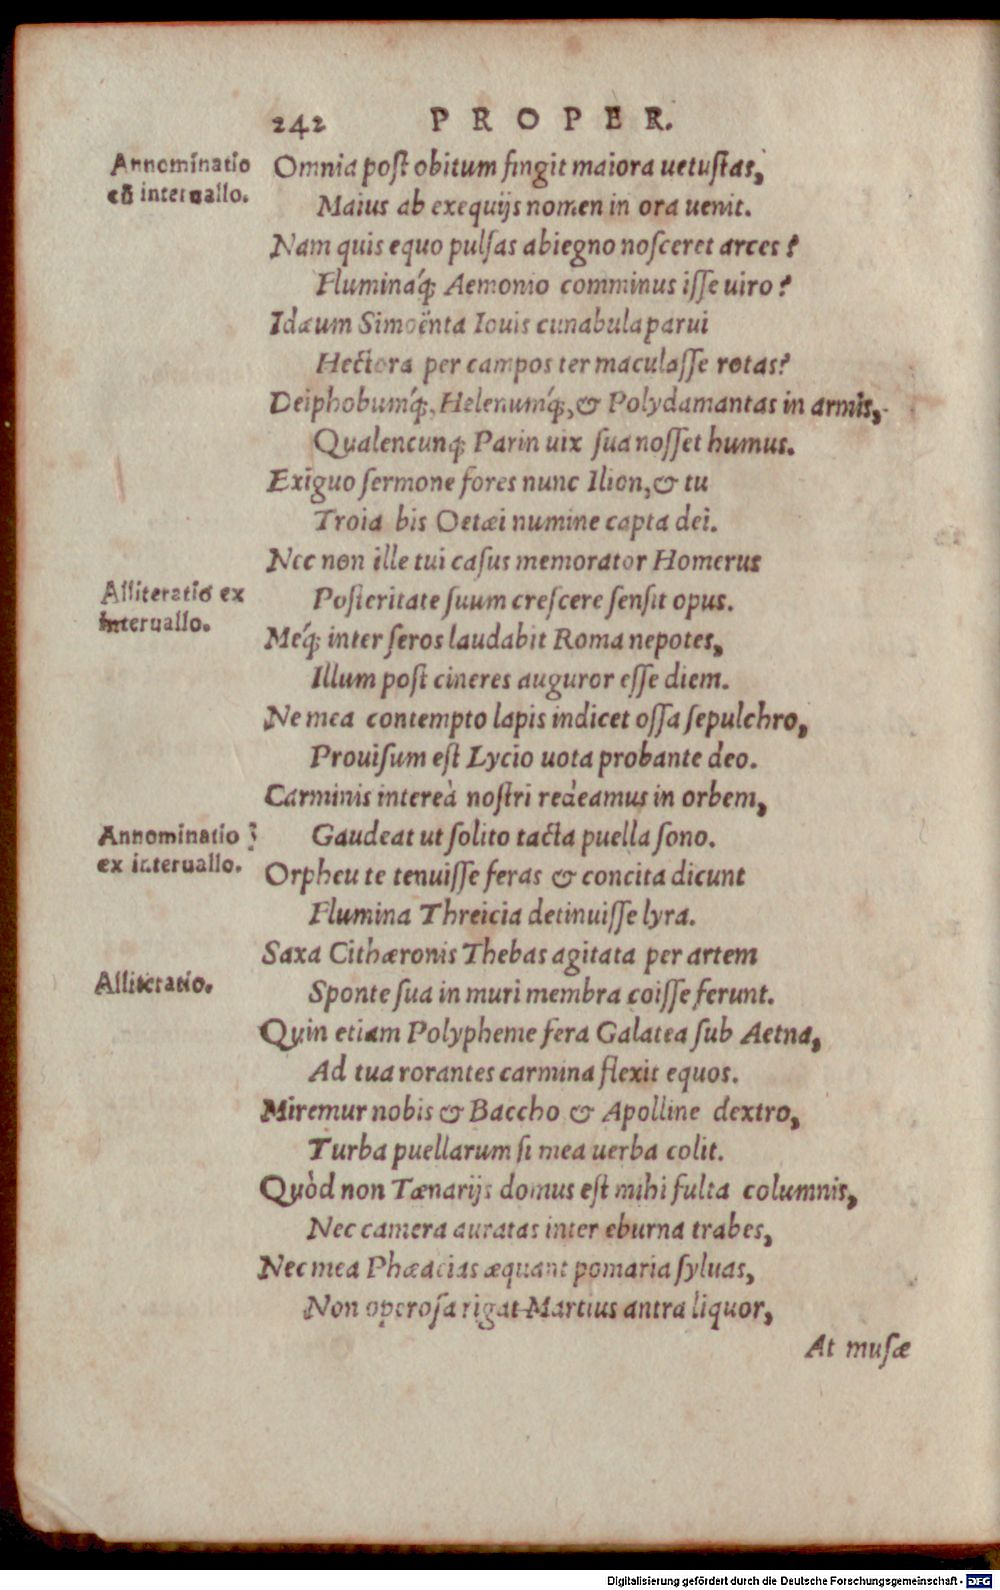 242 PROPER.
Annominatio
cū interuallo.
Omnia poſt obitum fingit maiora uetuſtas,
Maius ab exequijs nomen in ora uenit.
Nam quis equo pulſas abiegno noſceret arces?
Fluminaq́; Aemonio comminus iſſe uiro?
Idæum Simoënta Iouis cunabula parui
Hectora per campos ter maculaſſe rotas?
Deiphobumq́;, Helenumq́;, & Polydamantas in armis,
Qualencunq; Parin uix ſua noſſet humus.
Exiguo ſermone fores nunc Ilion, & tu
Troia bis Oetæi numine capta dei.
Nec non ille tui caſus memorator Homerus
Alliteratio ex
interuallo.
Poſteritate ſuum creſcere ſenſit opus.
Meq́; inter ſeros laudabit Roma nepotes,
Illum poſt cineres auguror eſſe diem.
Ne mea contempto lapis indicet oſſa ſepulchro,
Prouiſum eſt Lycio uota probante deo.
Carminis intereà noſtri redeamus in orbem,
Annominatio
ex interuallo.
Gaudeat ut ſolito tacta puella ſono.
Orpheu te tenuiſſe feras & concita dicunt
Flumina Threicia detinuiſſe lyra.
Saxa Cithæronis Thebas agitata per artem
Alliteratio.
Sponte ſua in muri membra coiſſe ferunt.
Quin etiam Polypheme fera Galatea ſub Aetna,
Ad tua rorantes carmina flexit equos.
Miremur nobis & Baccho & Apolline dextro,
Turba puellarum ſi mea uerba colit.
Quòd non Tænarijs domus eſt mihi fulta columnis,
Nec camera auratas inter eburna trabes,
Nec mea Phæacias æquant pomaria ſyluas,
Non operoſa rigat Martius antra liquor,
At muſæ
Digitalisierung gefördert durch die Deutsche Forschungsgemeinschaft - DFG